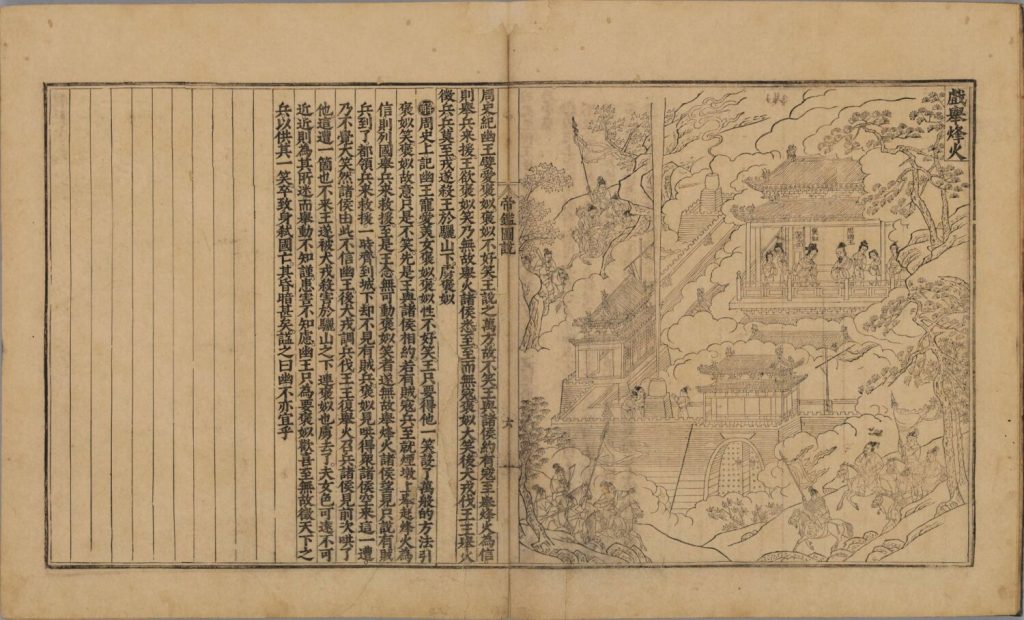 戲舉烽火
周幽王
褒姒
帝鑑圖說
六
周史紀幽王嬖愛褒姒褒姒不好笑王說之萬方故不笑王與諸侯約有寇至舉烽火為信
則舉兵來援王欲褒姒笑乃無故舉火諸侯悉至至而無寇褒姒大笑後犬戎伐王王舉火
徵兵兵莫至戎遂殺王於驪山下虜褒姒
解周史上記幽王寵愛美女褒姒褒姒性不好笑王只要得他一笑設了萬般的方法引
褒姒笑褒姒故意只是不笑先是王與諸侯相約若有賊寇兵至就煙墩上舉起烽火為
信則列國舉兵來救援至是王念無可動褒姒笑者遂無故舉烽火諸侯望見只說有賊
兵到了都領兵來救援一時齊到城下却不見有賊兵褒姒見哄得衆諸侯空來這一遭
乃不覺大笑然諸侯由此不信幽王後犬戎調兵伐王王復舉火召兵諸侯見前次哄了
他這遭一箇也不來王遂被犬戎殺害於驪山之下連褒姒也虜去了夫女色可遠不可
近近則為其所迷而舉動不知謹患害不知慮幽王只為要褒姒歡喜至無故徵天下之
兵以供其一笑卒致身弒國亡其昏暗甚矣謚之曰幽不亦宜乎